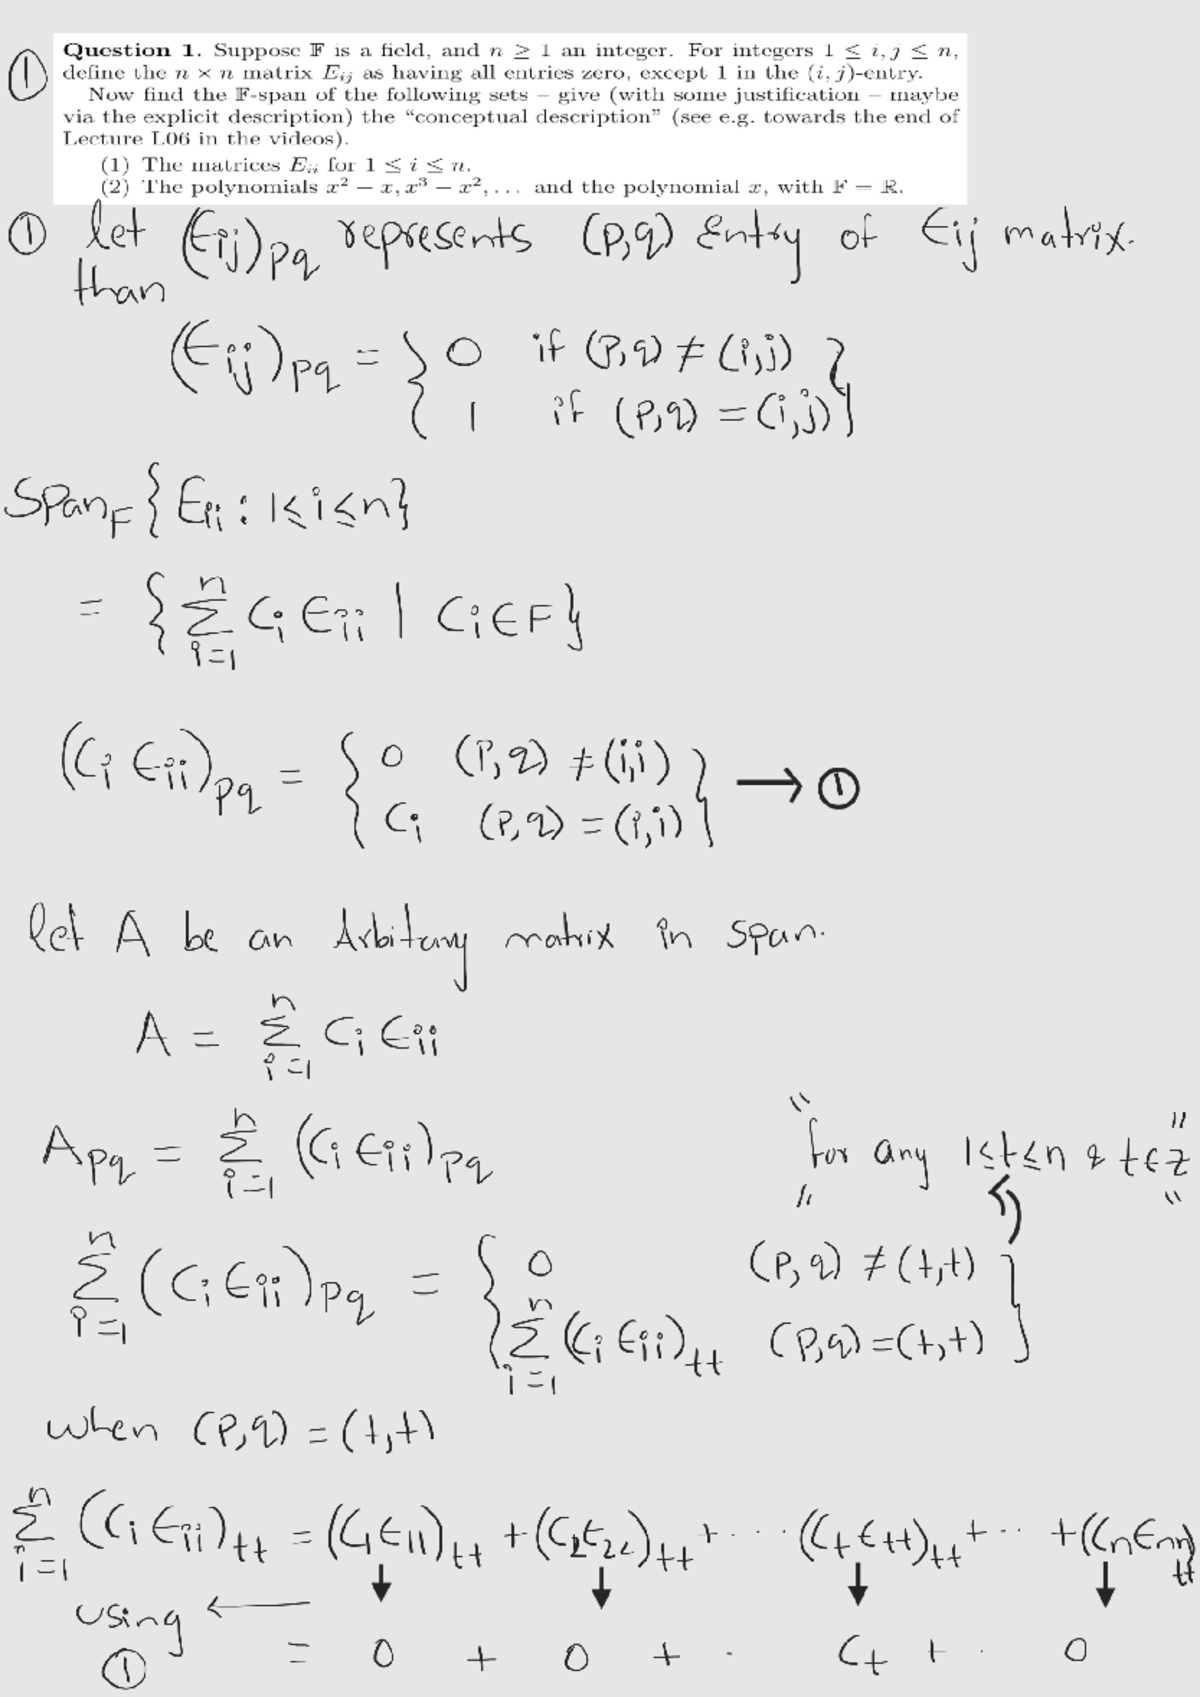 ① Question 1. Suppose 𝔽 is a field, and n ≥ 1 an integer. For integers 1 ≤ i, j ≤ n,
define the n × n matrix E_{ij} as having all entries zero, except 1 in the (i, j)-entry.
Now find the 𝔽-span of the following sets – give (with some justification – maybe
via the explicit description) the “conceptual description” (see e.g. towards the end of
Lecture L06 in the videos).
(1) The matrices E_{ii} for 1 ≤ i ≤ n.
(2) The polynomials x² − x, x³ − x², ... and the polynomial x, with 𝔽 = ℝ.
① let (E_{ij})_{pq} represents (p,q) Entry of E_{ij} matrix.
than
(E_{ij})_{pq} = { 0 if (p,q) ≠ (i,j)
1 if (p,q) = (i,j) }
Span_F {E_{ii} : 1≤i≤n}
= { ∑_{i=1}^{n} C_i E_{ii} | C_i ∈ F }
(C_i E_{ii})_{pq} = { 0 (p,q) ≠ (i,i)
C_i (p,q) = (i,i) } → ①
let A be an Arbitary matrix in span.
A = ∑_{i=1}^{n} C_i E_{ii}
A_{pq} = ∑_{i=1}^{n} (C_i E_{ii})_{pq} "for any 1≤t≤n & t∈Z"
∑_{i=1}^{n} (C_i E_{ii})_{pq} = { 0 (p,q) ≠ (t,t)
∑_{i=1}^{n} (C_i E_{ii})_{tt} (p,q) = (t,t) }
when (p,q) = (t,t)
∑_{i=1}^{n} (C_i E_{ii})_{tt} = (C_1 E_{11})_{tt} + (C_2 E_{22})_{tt} + ... (C_t E_{tt})_{tt} + .. + (C_n E_{nn})_{tt}
using ← ↓ ↓ ↓ ↓
① = 0 + 0 + . C_t + . 0